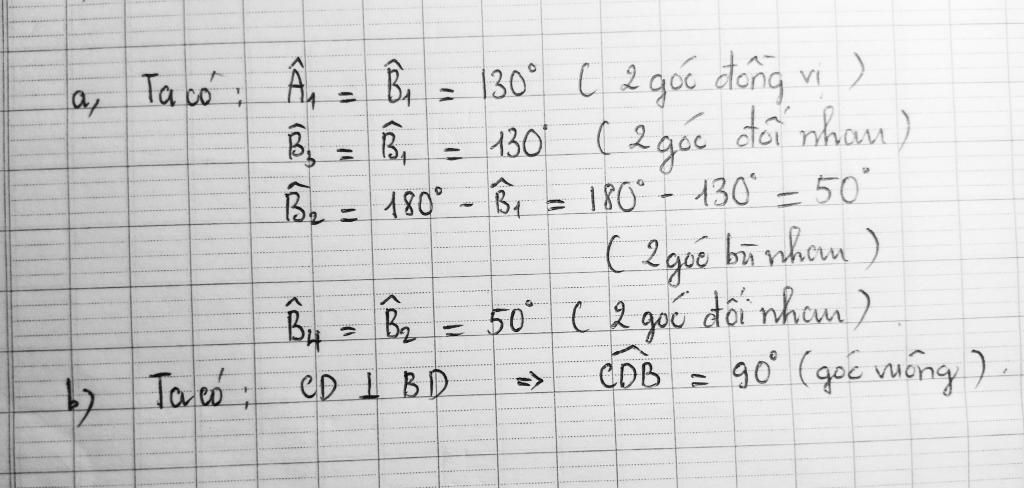 a, Ta có: Â₁ = B̂₁ = 130° ( 2 góc đồng vị )
B̂₃ = B̂₁ = 130° ( 2 góc đối nhau )
B̂₂ = 180° - B̂₁ = 180° - 130° = 50°
( 2 góc bù nhau )
B̂₄ = B̂₂ = 50° ( 2 góc đối nhau )
b) Ta có: CD ⊥ BD => \widehat{CDB} = 90° (góc vuông).